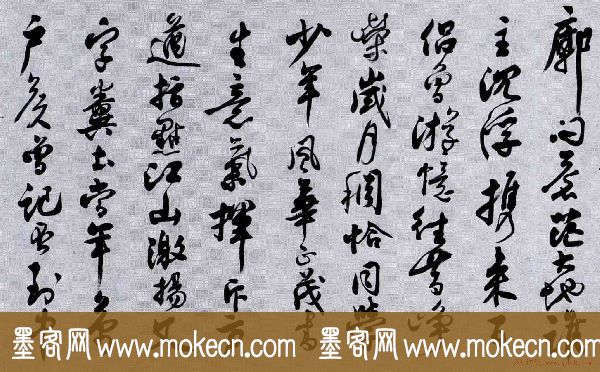 廓问苍茫大地誰
主沉浮携来百
侣曾游憶往昔崢
榮歲月稠恰同學
少年風華正茂書
生意氣揮斥方
遒指點江山激揚文
字糞土当年萬
户侯曾记否到中
墨客网 www.mokecn.com 墨客网 www.mokecn.com